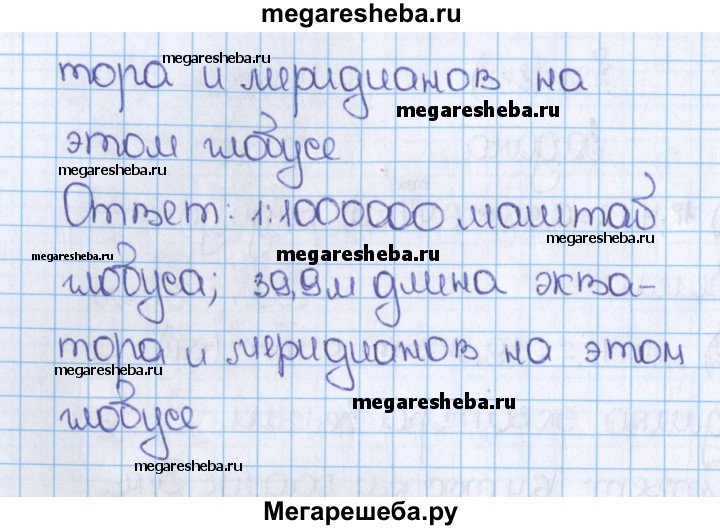 megaresheba.ru
megaresheba.ru
тора и меридианов на
megaresheba.ru
этом глобусе
megaresheba.ru
Ответ: 1:1000000 маштаб
megaresheba.ru
megaresheba.ru
megaresheba.ru
глобуса; 39,9м длина эква-
тора и меридианов на этом
megaresheba.ru
megaresheba.ru
глобусе
megaresheba.ru
Мегарешеба.ру